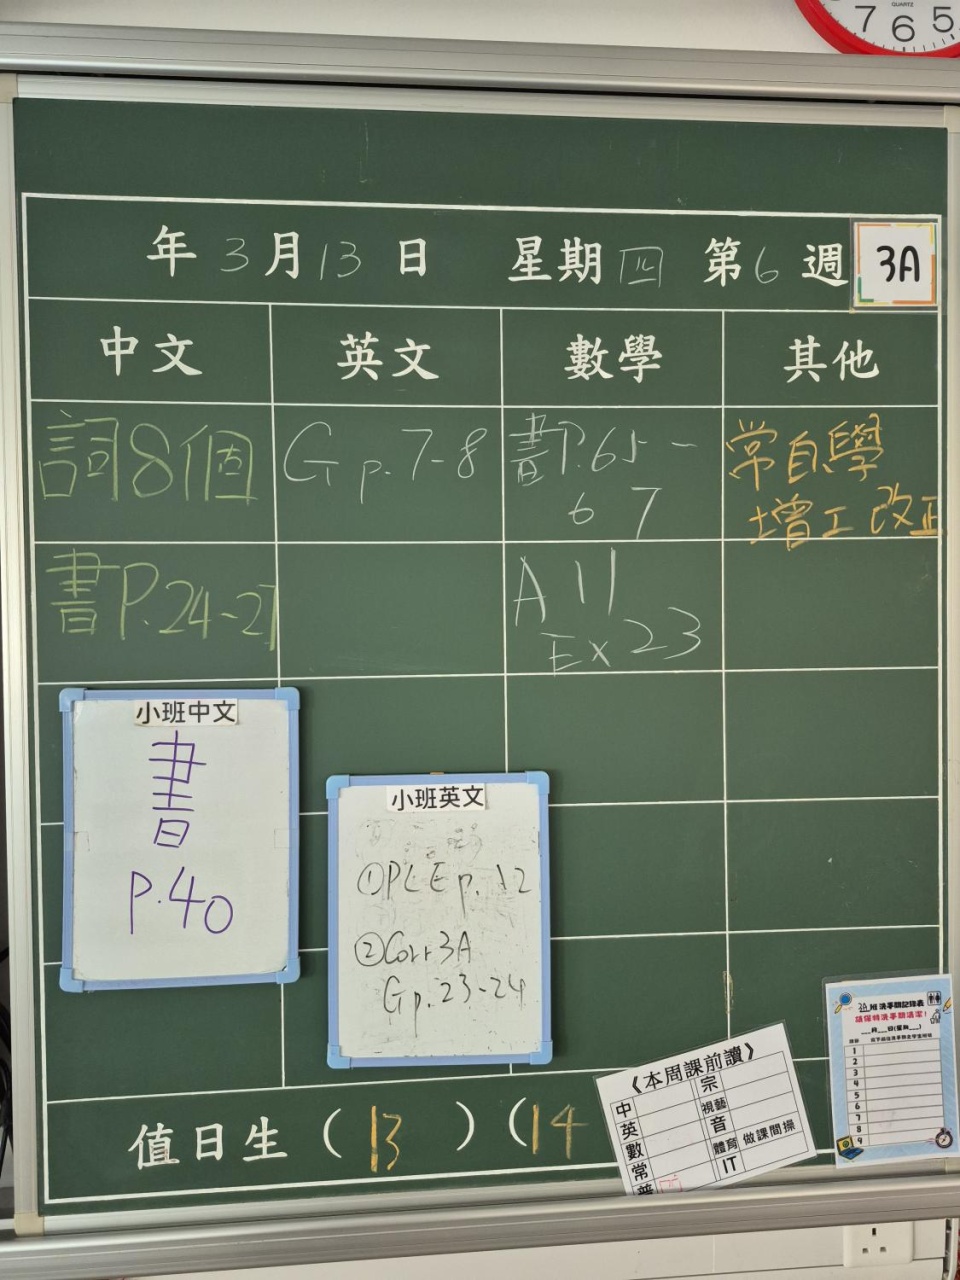 QUARTZ
7 6 5
年 3 月 13 日 星期 四 第 6 週
3A
中文 英文 數學 其他
詞8個
書P.24-27
G p.7-8
書P.65-
67
A 11
Ex 23
常自學
增工改正
小班中文
書
P.40
小班英文
①PLE p.12
②Corr 3A
Gp.23-24
值日生 (13) (14
《本周課前讀》
中
英
數
常
普 四
宗
視藝
音
體育 做課間操
IT
3A 班 洗手間記錄表
請保持洗手間清潔!
__月__日(星期__)
1
2
3
4
5
6
7
8
9